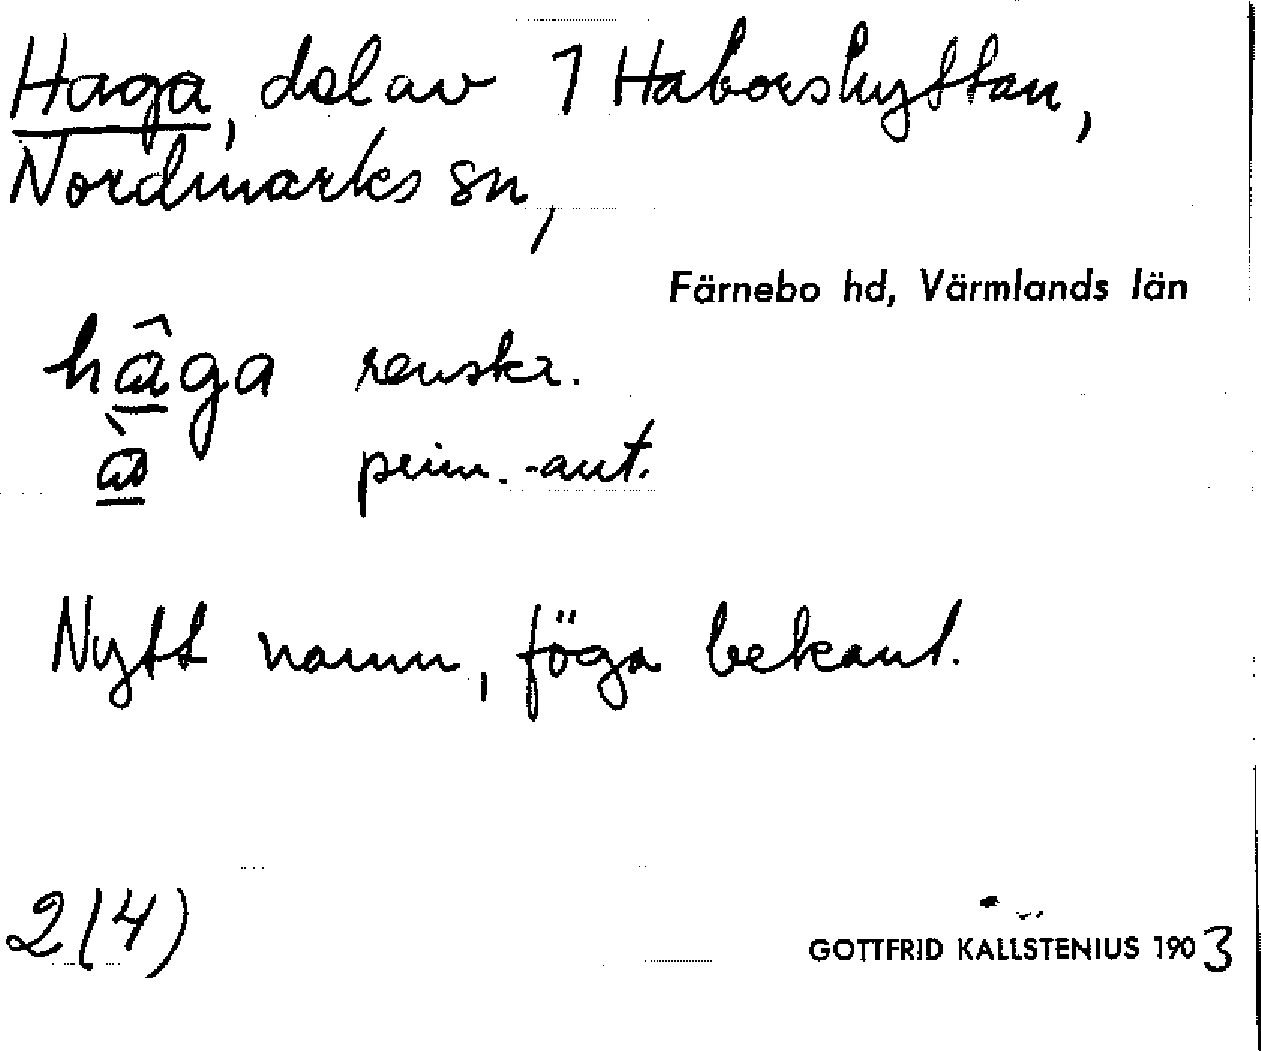 Haga, del av 1 Haborshyttan,
Nordmarks sn,
Färnebo hd, Värmlands län
hâga renskr.
à prim.-ant.
Nytt namn, föga bekant.
2(4)
GOTTFRID KALLSTENIUS 1903